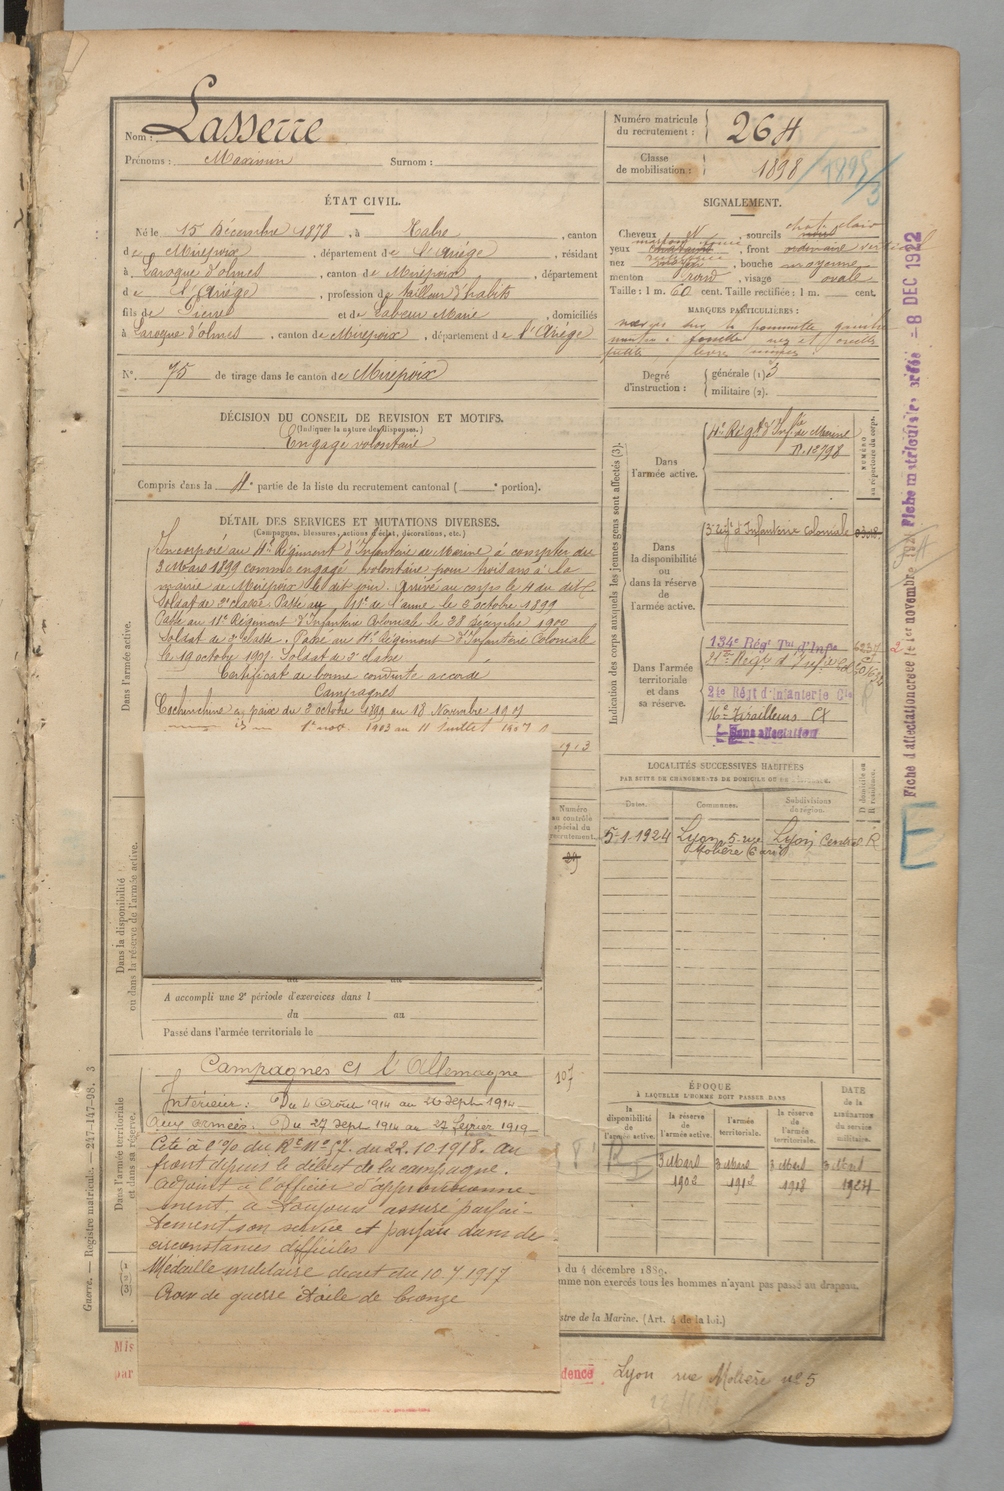 Nom : Lasserre
Prénoms : Maximin Surnom :
Numéro matricule du recrutement : 264
Classe de mobilisation : 1898 / 1895/3
ÉTAT CIVIL.
Né le 15 Décembre 1878, à Tabre, canton
de Mirepoix, département de l'Ariége, résidant
à Laroque d'olmes, canton de Mirepoix, département
de l'Ariége, profession de tailleur d'habits
fils de Pierre et de Labeur Marie, domiciliés
à Laroque d'olmes, canton de Mirepoix, département de l'Ariége
N°. 75 de tirage dans le canton de Mirepoix
DÉCISION DU CONSEIL DE REVISION ET MOTIFS.
(Indiquer la nature des dispenses.)
Engagé volontaire
Compris dans la 4e partie de la liste du recrutement cantonal ( e portion).
DÉTAIL DES SERVICES ET MUTATIONS DIVERSES.
(Campagnes, blessures, actions d'éclat, décorations, etc.)
Incorporé au 4e Régiment d'Infanterie de Marine à compter du
3 Mars 1899 comme engagé volontaire pour trois ans à la
mairie de Mirepoix le dit jour. Arrivé au corps le 4 du dit.
Soldat de 2e classe. Passé au 11e de l'arme le 3 octobre 1899
Passé au 11e Régiment d'Infanterie Coloniale le 28 Décembre 1900
Soldat de 2e classe. Passé au 4e Régiment d'Infanterie Coloniale
le 19 octobre 1901. Soldat de 2e classe
Certificat de bonne conduite accordé
Campagnes
Cochinchine en paix du 3 octobre 1899 au 18 Novembre 1901
1903 au 11 Juillet 1907
Dans l'armée active.
Dans la disponibilité
ou dans la réserve de l'armée active.
Numéro
au contrôle
spécial du
recrutement.
A accompli une 2e période d'exercices dans l
du au
Passé dans l'armée territoriale le
Dans l'armée territoriale
et dans sa réserve.
107
Campagnes ct l'Allemagne
Intérieur : Du 4 Août 1914 au 26 Sept 1914
Aux armées : Du 27 Sept 1914 au 27 février 1919
Cité à l'o/ du Rt No 57. du 22.10.1918. au
front depuis le début de la campagne.
adjoint à l'officier d'approvisionne-
ment, a toujours assuré parfai-
tement son service et parfois dans de
circonstances difficiles
Médaille militaire decret du 10.7.1917
Croix de guerre étoile de bronze
SIGNALEMENT.
Cheveux , sourcils chat. clair
yeux , front vertical
nez , bouche moyenne
menton rond, visage ovale
Taille : 1 m. 60 cent. Taille rectifiée : 1 m. cent.
MARQUES PARTICULIÈRES :
Degré d'instruction : générale (1) 3
militaire (2).
Indication des corps auxquels les jeunes gens sont affectés (3).
NUMÉRO
au répertoire du corps.
Dans l'armée active.
4e Régt d'Infie de Marine
n. 12798
Dans la disponibilité ou dans la réserve de l'armée active.
3e régt d'Infanterie coloniale
Dans l'armée territoriale et dans sa réserve.
134e Régt Tal d'Infie
21e Réjt d'Infanterie Cle
16e Tirailleurs CX
Sans affectation
LOCALITÉS SUCCESSIVES HABITÉES
PAR SUITE DE CHANGEMENTS DE DOMICILE OU DE
Dates. Communes. Subdivisions de région. D domicile ou R résidence.
5-1-1924 Lyon, 5 rue Molière (6 arrt) Lyon Central R
ÉPOQUE
À LAQUELLE L'HOMME DOIT PASSER DANS
la disponibilité de l'armée active. la réserve de l'armée active. l'armée territoriale. la réserve de l'armée territoriale.
DATE de la LIBÉRATION du service militaire.
3 Mars 1902 3 Mars 1912 3 Mars 1918 3 Mars 1924
du 4 décembre 1889.
mme non exercés tous les hommes n'ayant pas passé au drapeau.
stre de la Marine. (Art. 4 de la loi.)
Mis
par
dence Lyon rue Molière no 5
Guerre. — Registre matricule. — 247-147-98. 3
Fiche matriculaire créée - 8 DEC 1922
Fiche d'affectation creee le 1er novembre 192
E